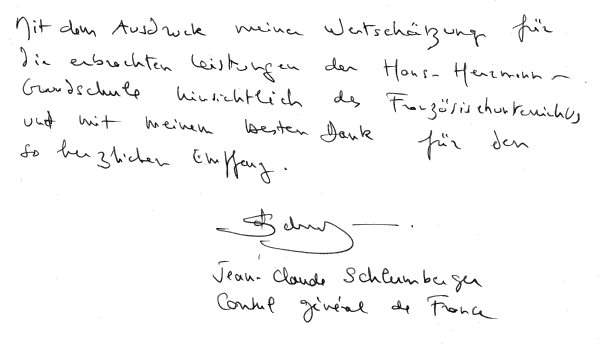 Mit dem Ausdruck meiner Wertschätzung für
die erbrachten Leistungen der Hans-Herrmann-
Grundschule hinsichtlich des Französischunterrichts
und mit meinem besten Dank für den
so herzlichen Empfang.
Jean-Claude Schlumberger
Consul général de France